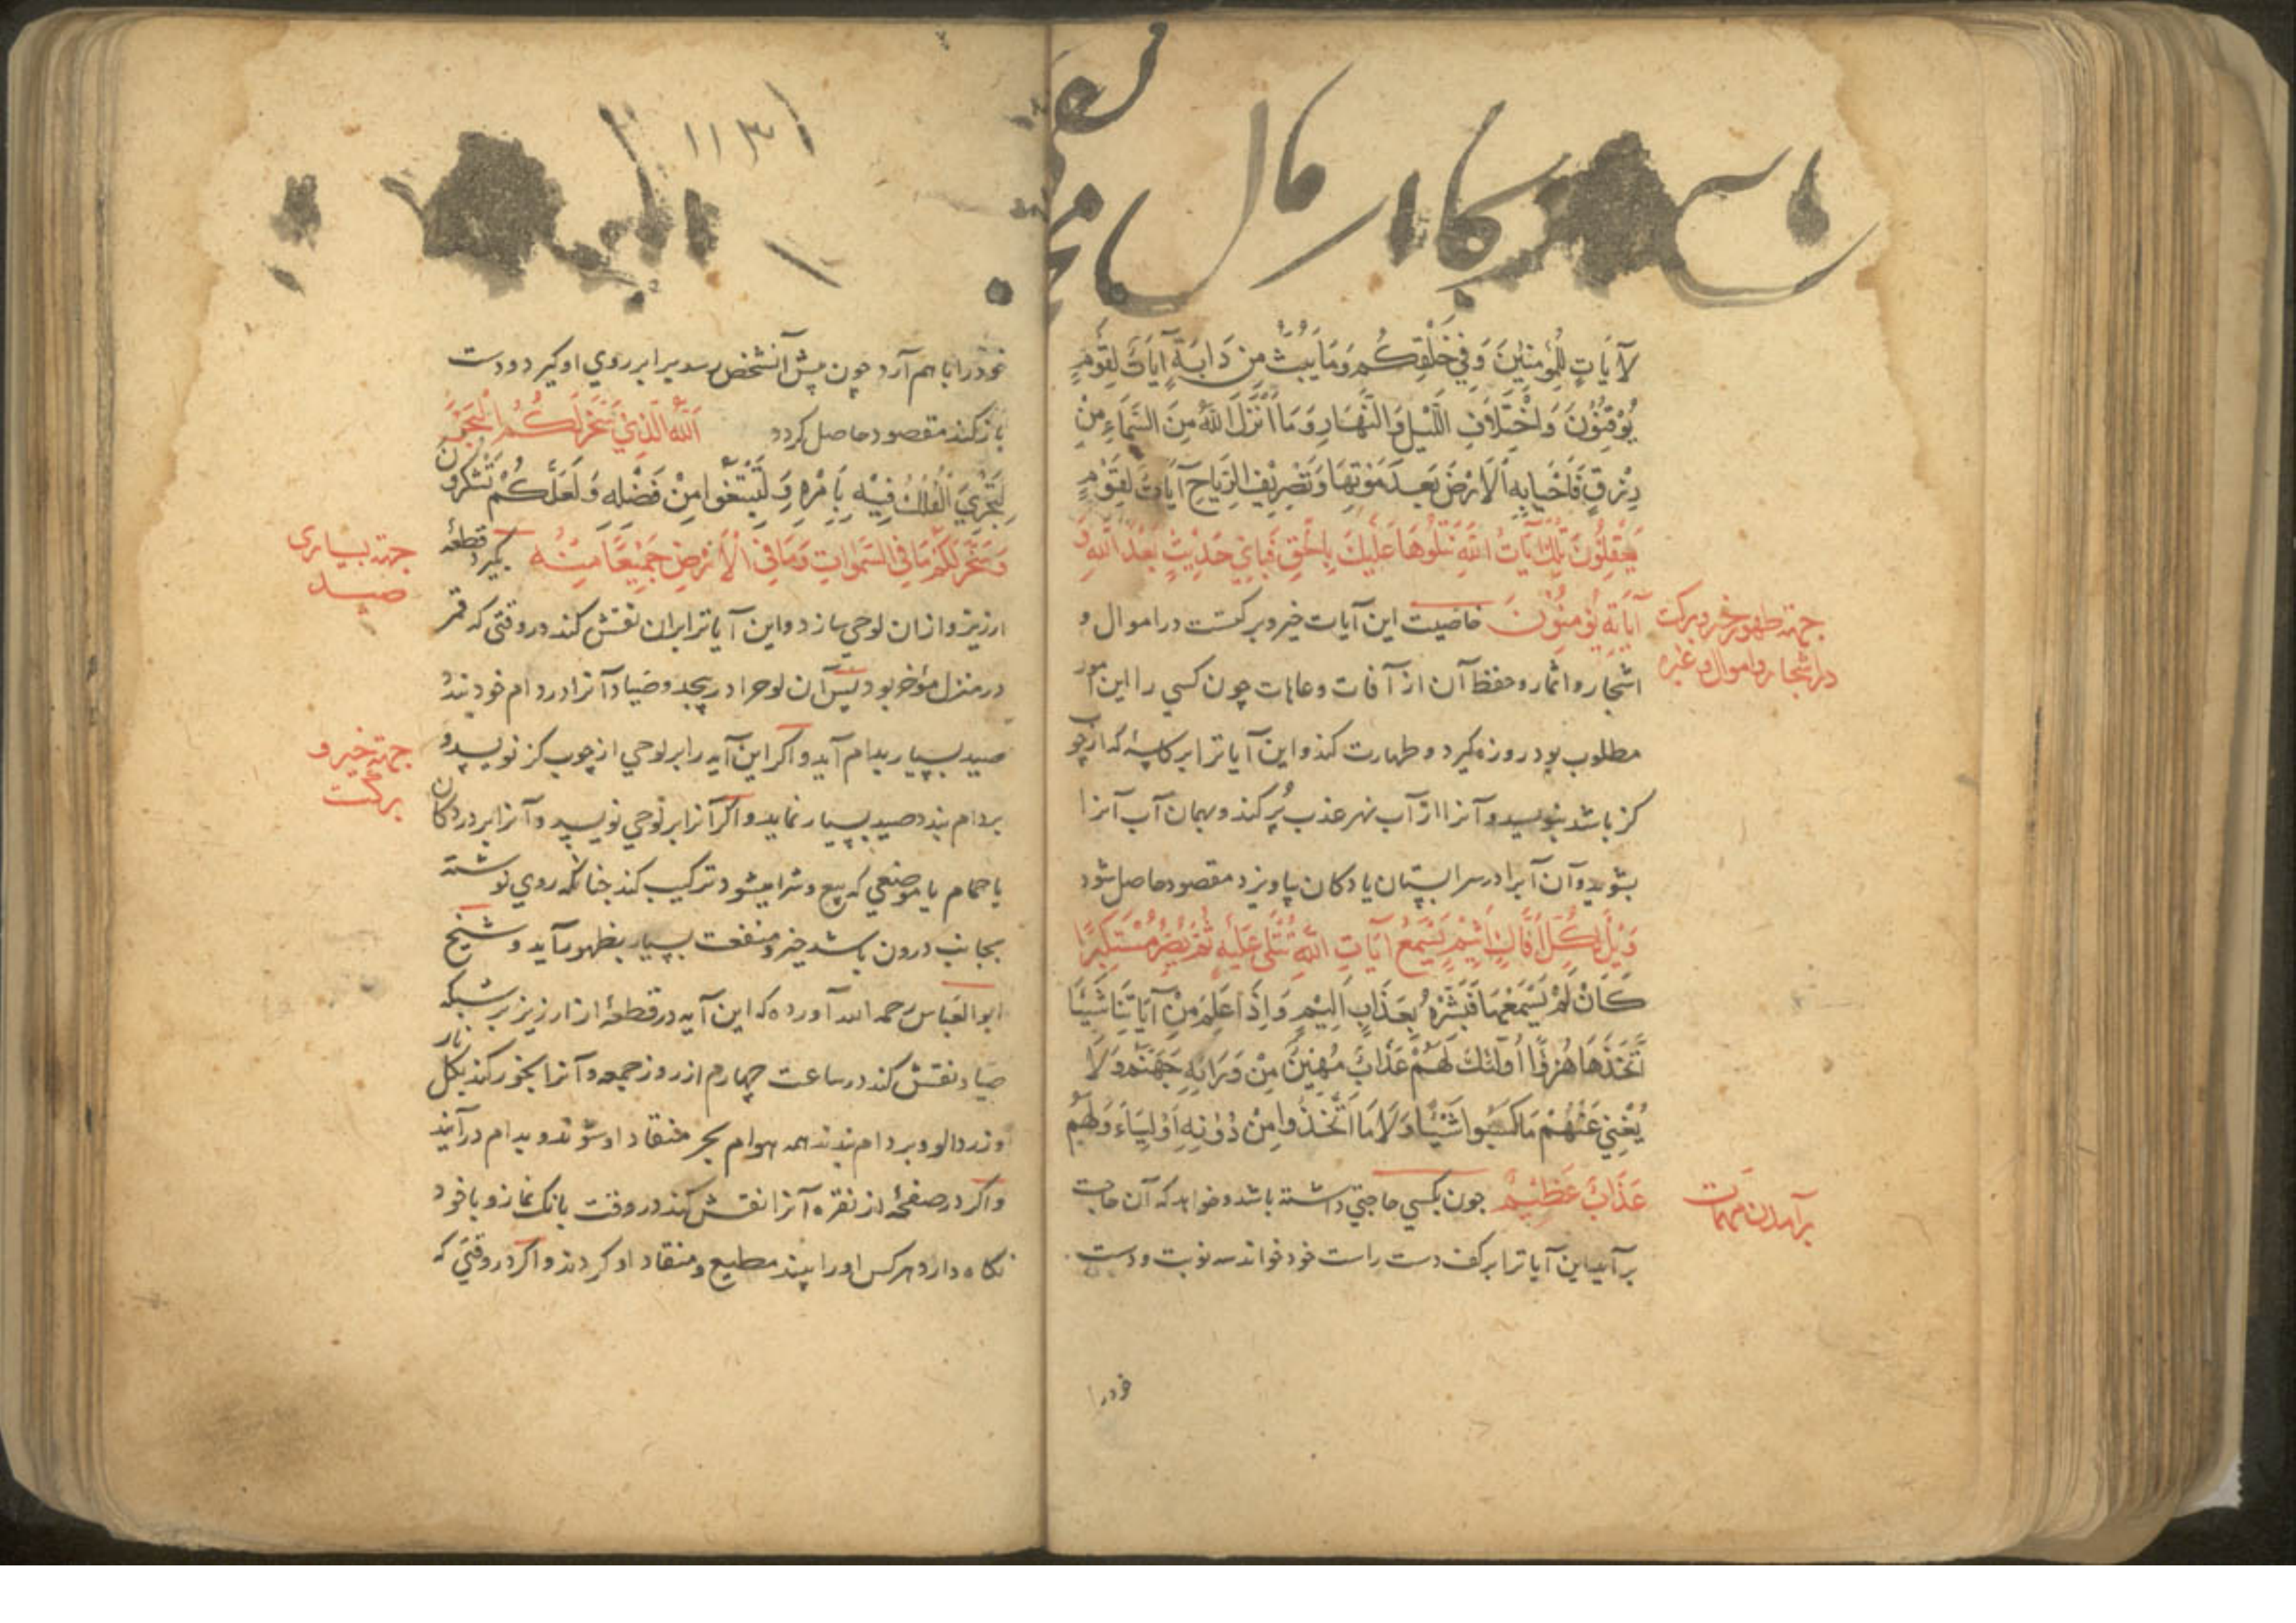 لَآيَاتٍ لِلْمُؤْمِنِينَ وَفِي خَلْقِكُمْ وَمَا يَبُثُّ مِنْ دَابَةٍ آيَاتٌ لِقَوْمٍ
يُوْقِنُوْنَ وَاخْتِلَافِ اللَّيْلِ وَالنَّهَارِ وَمَا اَنْزَلَ اللّٰهُ مِنَ السَّمَاءِ مِنْ
رِزْقٍ فَاَحْيَا بِهِ الْاَرْضَ بَعْدَ مَوْتِهَا وَتَصْرِيْفِ الرِّيَاحِ آيَاتٌ لِقَوْمٍ
يَعْقِلُوْنَ تِلْكَ آيَاتُ اللّٰهِ نَتْلُوْهَا عَلَيْكَ بِالْحَقِّ فَبِاَيِّ حَدِيْثٍ بَعْدَ اللّٰهِ وَ
آيَاتِهِ يُؤْمِنُوْنَ خاصیت این آیات خیر و برکتست در اموال و
جهة ظهور خیر و برکت
در اشجار و اموال و غیره
اشجار و اثمار و حفظ آن از آفات و عاهات چون کسی را این امور
مطلوب بود روزه گیرد و طهارت کند و این آیاترا بر کاسهٔ که از چوب
کز باشد بنویسد و آنرا از آب نهر عذب پُر کند و بهمان آب آنرا
بشوید و آن آبرا در سرا بستان یا دکان پاویزد مقصود حاصل شود
وَيْلٌ لِكُلِّ اَفَّاكٍ اَثِيْمٍ يَسْمَعُ آيَاتِ اللّٰهِ تُتْلٰى عَلَيْهِ ثُمَّ يُصِرُّ مُسْتَكْبِرًا
كَاَنْ لَمْ يَسْمَعْهَا فَبَشِّرْهُ بِعَذَابٍ اَلِيْمٍ وَاِذَا عَلِمَ مِنْ آيَاتِنَا شَيْئًا
اتَّخَذَهَا هُزُوًا اُولٰئِكَ لَهُمْ عَذَابٌ مُهِيْنٌ مِنْ وَرَائِهِمْ جَهَنَّمُ وَلَا
يُغْنِيْ عَنْهُمْ مَا كَسَبُوا شَيْئًا وَلَا مَا اتَّخَذُوا مِنْ دُوْنِهِ اَوْلِيَاءَ وَلَهُمْ
عَذَابٌ عَظِيْمٌ چون بکسی حاجتی داشته باشد و خواهد که آن حاجت
برآمدن مهمات
برآید این آیاترا بر کف دست راست خود خواند سه نوبت و دست
خودرا
۱۱۳۱
خودرا باهم آرد چون پیش آنشخص رسد برابر روی او گیرد و دست
باز کند مقصود حاصل کردد اَللّٰهُ الَّذِيْ سَخَّرَ لَكُمُ الْبَحْرَ
لِتَجْرِيَ الْفُلْكُ فِيْهِ بِاَمْرِهِ وَلِتَبْتَغُوا مِنْ فَضْلِهِ وَلَعَلَّكُمْ تَشْكُرُوْنَ
وَسَخَّرَ لَكُمْ مَا فِي السَّمٰوَاتِ وَمَا فِي الْاَرْضِ جَمِيْعًا مِنْهُ بگیرد قطعهٔ
جهة بسیاری
صید
ارزیز و ازان لوحی سازد و این آیاترا بران نقش کند در وقتی که قمر
در منزل مؤخر بود پس آن لوحرا در پیچد و صیاد آنرا در دام خود بندد
صید بسیار بدام آید و اکر این آیه را بر لوحی از چوب کز نویسد و
جهة خیر و
برکت
بر دام بندد صید بسیار نماید و اکر آنرا بر لوحی نویسد و آنرا بر در دکان
یا حمام یا موضعی که بیع و شرا میشود ترکیب کند چنانکه روی نوشته
بجانب درون باشد خیر و منفعت بسیار بظهور آید و شیخ
ابو العباس رحمه الله آورده که این آیه در قطعهٔ از ارزیز بر شبکه
صیاد نقش کند در ساعت چهارم از روز جمعه و آنرا بخور کند بکل نار
و زردالو و بر دام بندند همه هوام بحر منقاد او شوند و بدام درآیند
و اکر در صفحهٔ از نقره آنرا نقش کند در وقت بانک نماز و با خود
نکاه دارد هر کس او را بیند مطیع و منقاد او کردند و اکر در وقتی که